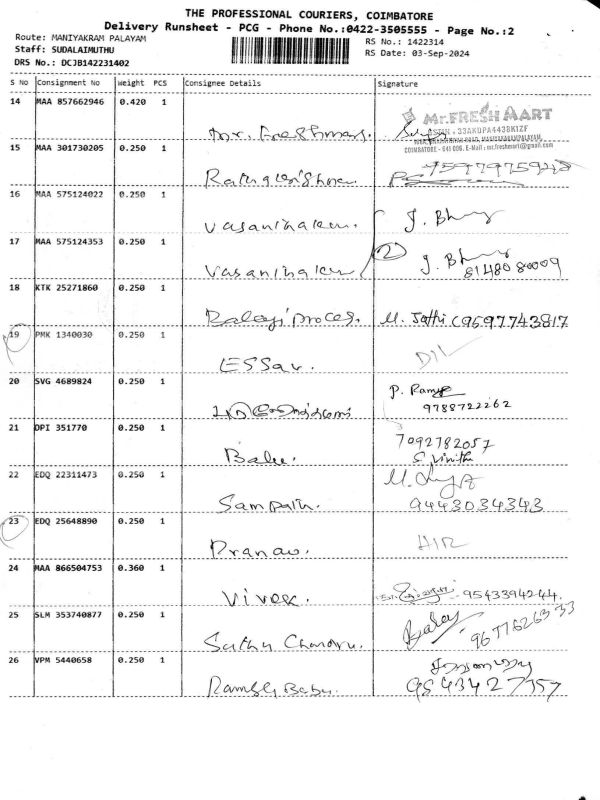 THE PROFESSIONAL COURIERS, COIMBATORE
Delivery Runsheet - PCG - Phone No.:0422-3505555 - Page No.:2
Route: MANIYAKRAM PALAYAM
RS No.: 1422314
Staff: SUDALAIMUTHU
RS Date: 03-Sep-2024
DRS No.: DCJB142231402
S No Consignment No Weight PCS Consignee Details Signature
14 MAA 857662946 0.420 1
Mr.FRESH MART
GSTIN : 33AKUPA4438K1ZF
COIMBATORE - 641 006. E-Mail : mr.freshmart@gmail.com
Mr. Freshmart.
15 MAA 301730205 0.250 1
Rathakrishna 7597975948
16 MAA 575124022 0.250 1
Vasanthakum. J. Bhuv
17 MAA 575124353 0.250 1
Vasanthakum 2 J. Bhuv
8148080009
18 KTK 25271860 0.250 1
Balaji Proces. M. Jothi (9597743817
19 PMK 1340030 0.250 1
ESSar. D/L
20 SVG 4689824 0.250 1
P. Ramya
9788722262
21 DPI 351770 0.250 1
7092782057
Babu. S. Vinitha
22 EDQ 22311473 0.250 1
Sampath. 9443034343
23 EDQ 25648890 0.250 1
Pranav.
24 MAA 866504753 0.360 1
Vivek. 9543394244.
25 SLM 353740877 0.250 1
Sathy Chandru. Balaj 9677626333
26 VPM 5440658 0.250 1
Ramesh Babu. 9543427757